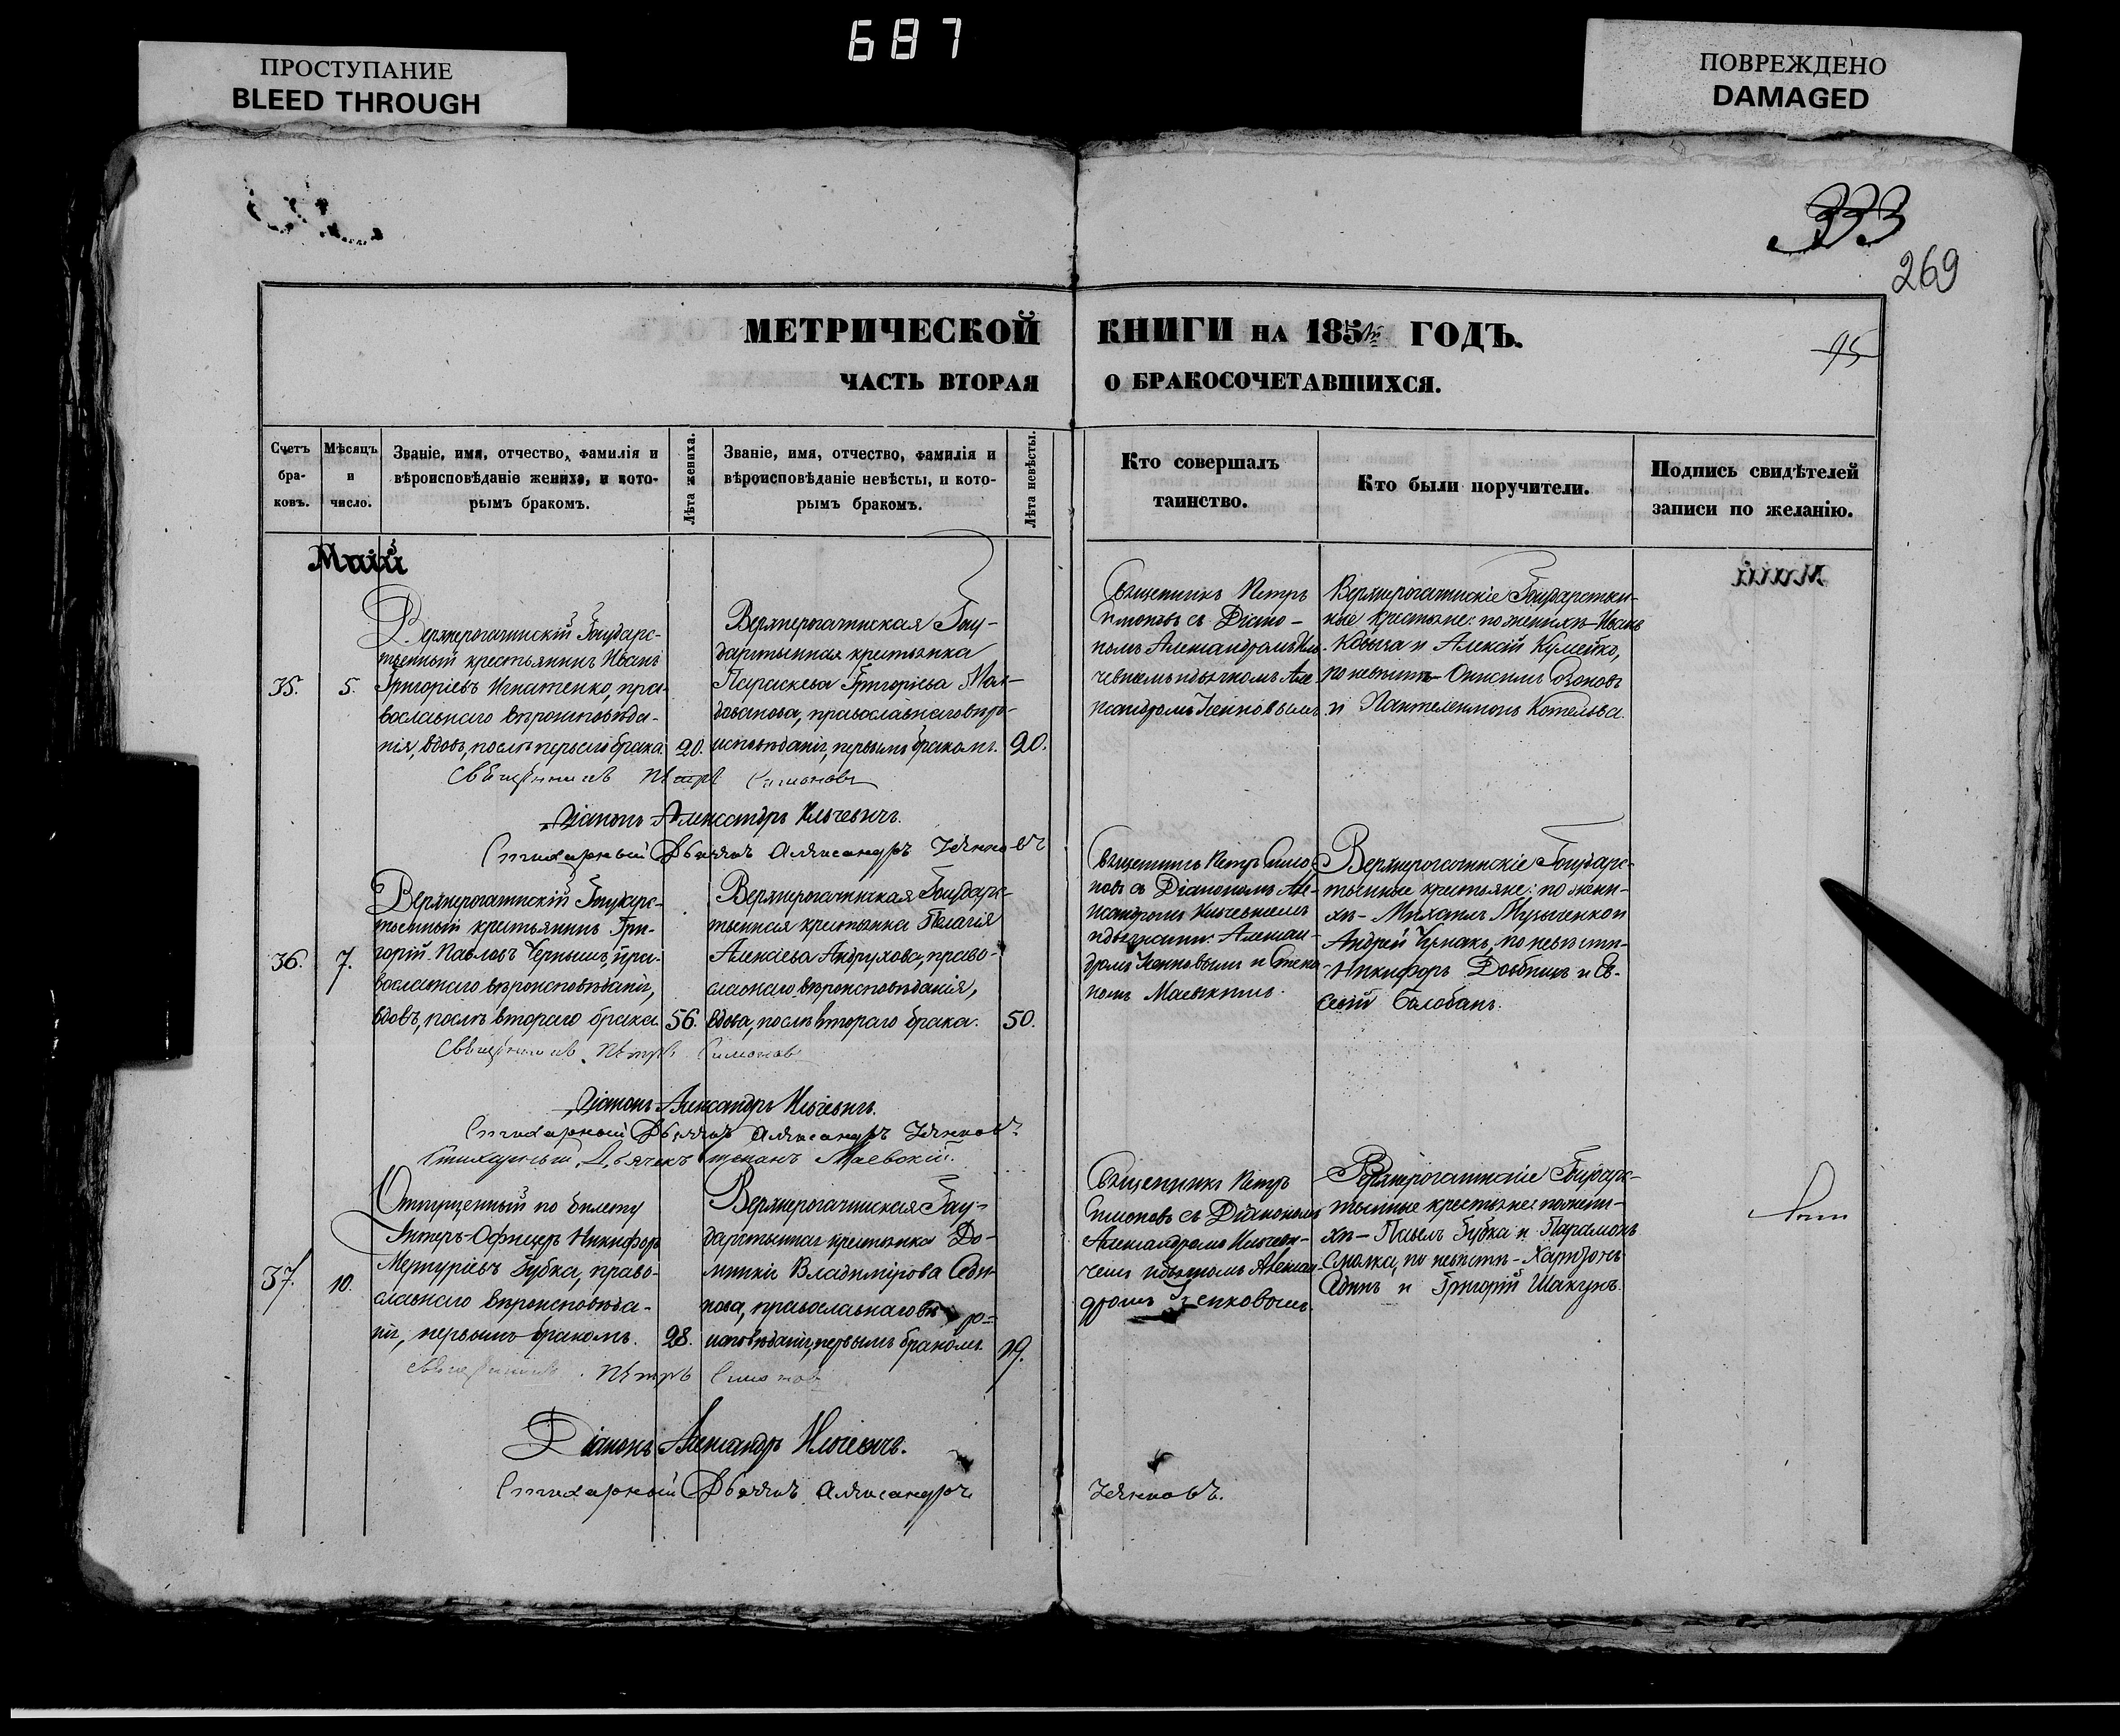 687
ПРОСТУПАНИЕ
BLEED THROUGH
ПОВРЕЖДЕНО
DAMAGED
333
269
МЕТРИЧЕСКОЙ КНИГИ НА 185 ГОДЪ.
95
ЧАСТЬ ВТОРАЯ О БРАКОСОЧЕТАВШИХСЯ.
Счетъ
бра-
ковъ.
Мѣсяцъ
и
число.
Званіе, имя, отчество, фамилія и
вѣроисповѣданіе жениха, и кото-
рымъ бракомъ.
Лѣта жениха.
Званіе, имя, отчество, фамилія и
вѣроисповѣданіе невѣсты, и кото-
рымъ бракомъ.
Лѣта невѣсты.
Кто совершалъ
таинство.
Кто были поручители.
Подпись свидѣтелей
записи по желанію.
Маій
35.
5.
Верхнерогачинскій Государс-
твенный крестьянинъ Иванъ
Григоріевъ Игнатенко, пра-
вославнаго вѣроисповѣда-
нія, вдовъ, послѣ перваго брака.
20.
Верхнерогачинская Госу-
дарственная крестьянка
Параскева Григоріева
православнаго вѣро-
исповѣданія, первымъ бракомъ.
20.
Священникъ Петръ
Симоновъ съ Діако-
номъ Александромъ Иль-
чевичемъ и дьячкомъ Але-
ксандромъ Ценковымъ
Верхнерогачинскіе Государствен-
ные крестьяне: по женихѣ - Иванъ
Ковыга и Алексій Кумейко,
по невѣстѣ - Онисимъ Созоновъ
и Пантелеимонъ Котельва.
Священникъ Петръ Симоновъ
Діаконъ Александръ Ильчевичъ.
Стихарный Дьячокъ Александръ Ценковъ
36.
7.
Верхнерогачинскій Государс-
твенный крестьянинъ Гри-
горій Павловъ Чернышъ, пра-
вославнаго вѣроисповѣданія,
вдовъ, послѣ втораго брака.
56.
Верхнерогачинская Государс-
твенная крестьянка Пелагія
Алексіева Андрухова, право-
славнаго вѣроисповѣданія,
вдова, послѣ втораго брака.
50.
Священникъ Петръ Симо-
новъ съ Діакономъ Але-
ксандромъ Ильчевичемъ
и дьячками: Алексан-
дромъ Ценковымъ и Степа-
номъ Маевскимъ.
Верхнерогачинскіе Государс-
твенные крестьяне: по жени-
хѣ - Михаилъ Музыченко и
Андрей Чумакъ, по невѣстѣ -
Никифоръ Довбишъ и Ев-
севій Балобанъ.
Священникъ Петръ Симоновъ
Діаконъ Александръ Ильчевичъ.
Стихарный Дьячокъ Александръ Ценковъ
Стихарный Дьячекъ Степанъ Маевскій.
37.
10.
Отпущенный по билету
Унтеръ-Офицеръ Никифоръ
Меркуріевъ Губка, право-
славнаго вѣроисповѣда-
нія, первымъ бракомъ.
28.
Верхнерогачинская Госу-
дарственная крестьянка До-
мникія Владимірова Един-
нова, православнаго вѣро-
исповѣданія, первымъ бракомъ.
19.
Священникъ Петръ
Симоновъ съ Діакономъ
Александромъ Ильчеви-
чемъ и дьячкомъ Алексан-
дромъ Ценковымъ.
Верхнерогачинскіе Государс-
твенные крестьяне: по жени-
хѣ - Павелъ Губка и Парамонъ
Смолка, по невѣстѣ - Харитонъ
Единъ и Григорій Шакунъ.
Священникъ Петръ Симоновъ
Діаконъ Александръ Ильчевичъ.
Стихарный Дьячокъ Александръ Ценковъ.